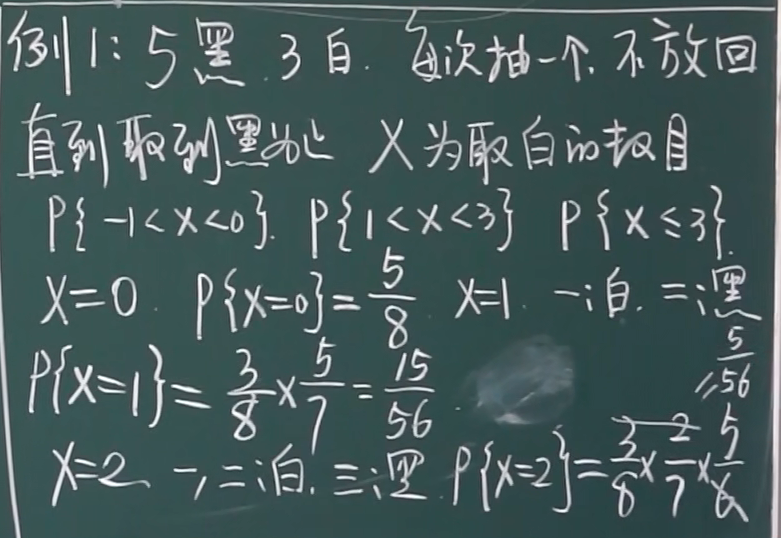 例1: 5黑 3白. 每次抽一个. 不放回
直到取到黑为止 X为取白的数目
P{-1<X<0}. P{1<X<3} P{X≤3}.
X=0. P{X=0}=5/8 X=1. 一:白. 二:黑
P{X=1}=3/8×5/7=15/56 =5/56
X=2 一,二:白. 三:黑 P{X=2}=3/8×2/7×5/6